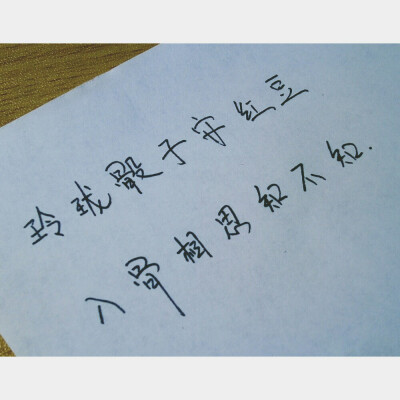 玲珑骰子安红豆
入骨相思知不知.